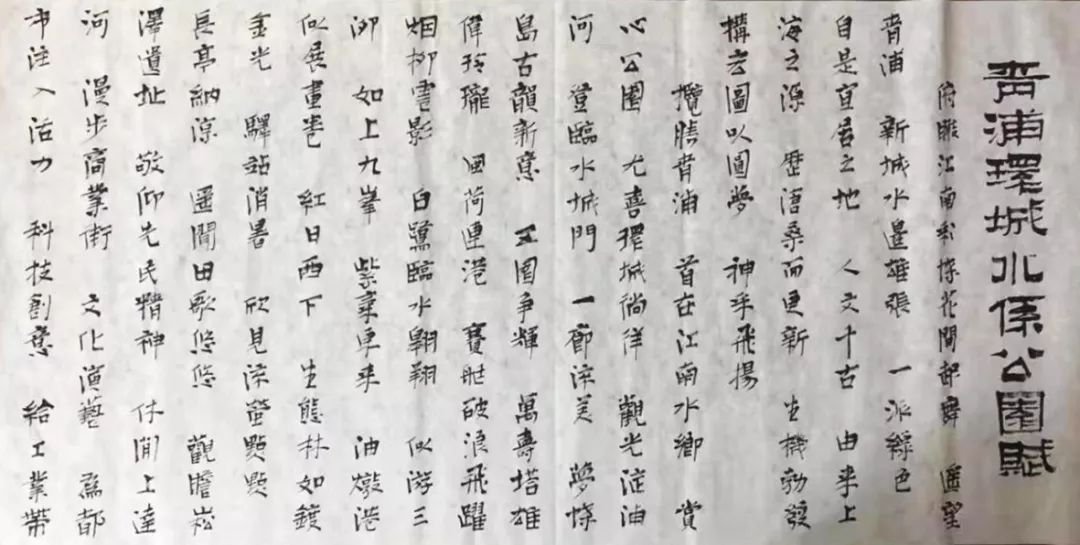 青浦環城水系公園賦
俯瞰江南彩蝶花間起舞 遥望
青浦 新城水邊雄張 一派綠色
自是宜居之地 人文千古 由來上
海之源 歷滄桑而更新 生機勃發
構宏圖以圖夢 神采飛揚
攬勝青浦 首在江南水鄉 賞
心公園 尤喜環城徜徉 觀光淀浦
河 登臨水城門 一廊淙美 夢蝶
島古韻新意 五園争輝 萬壽塔雄
偉玲瓏 風荷連港 賽艇破浪飛躍
烟柳雲影 白鷺臨水翱翔 似游三
泖 如上九峯 紫氣東來 油墩港
似展畫卷 紅日西下 生態林如鍍
金光 驛站消暑 欣見流螢點點
長亭納凉 遥聞田歌悠悠 觀瞻崧
澤遺址 敬仰先民精神 休閒上達
河 漫步商業街 文化演藝 爲都
市注入活力 科技創意 給工業帶